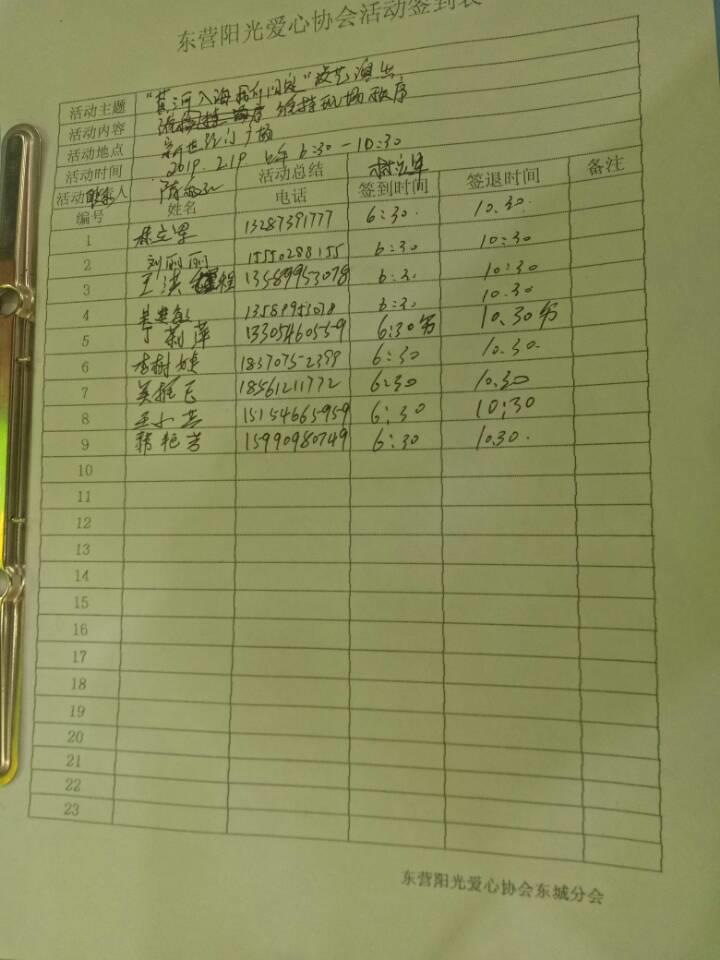 东营阳光爱心协会活动签到表
活动主题 "黄河入海 我们回家"文艺演出
活动内容 维持现场秩序
活动地点 新世纪门广场
活动时间 2019.2.19 上午6:30-10:30
活动联系人 活动总结 林立军
编号 姓名 电话 签到时间 签退时间 备注
1 林立军 13287391777 6:30 10.30
2 刘丽丽 15550288155 6:30 10:30
3 王洪程 13589953078 6:30 10:30
4 13589953078 6:30 10.30
5 丁莉萍 13305460559 6:30分 10.30分
6 李树 18370752399 6:30 10.30
7 吴振飞 18561211772 6:30 10.30
8 王小芸 15154665959 6:30 10:30
9 韩艳芳 15990980749 6:30 10.30
10
11
12
13
14
15
16
17
18
19
20
21
22
23
东营阳光爱心协会东城分会